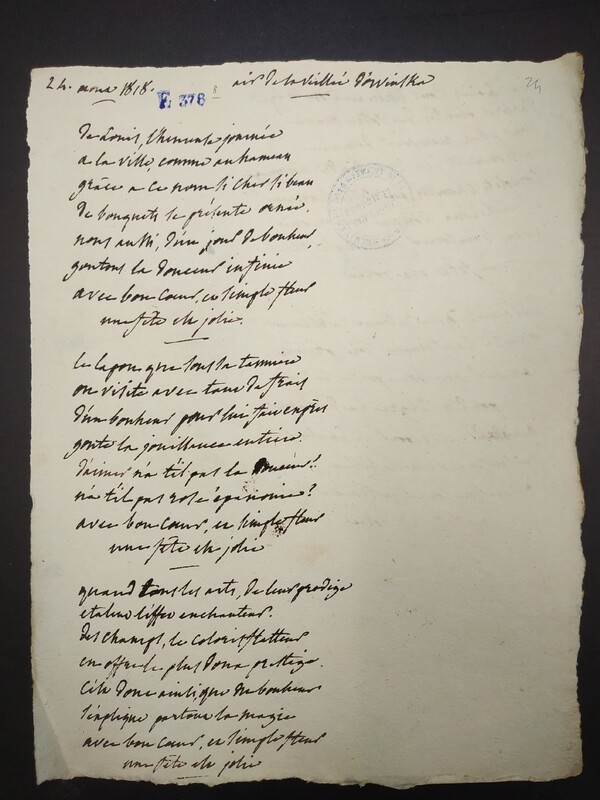 24. mars 1818.
E. 378
8
air de la veillée d'ovinska
24
de Louis, l'heureuse journée
a la ville, comme au hameau
grâce a ce nom si cher si beau
de bouquets se présente ornée.
nous aussi, d'un jour de bonheur,
goutons la douceur infinie
avec bon cœur, et simple fleur
une fête est jolie.
le lapon que sous sa tannière
on visite avec tant de frais
d'un bonheur pour lui fait exprès
goute la jouissance entière.
d'aimer n'a t'il pas la douceur?
n'a t'il pas rose épanouie?
avec bon cœur, et simple fleur
une fête est jolie
quand tous les arts, de leur prodige
etalent l'effet enchanteur.
des champs, le coloris flatteur
en offre le plus doux prestige.
C'est donc ainsi, que du bonheur
s'explique partout la magie
avec bon cœur, et simple fleur
une fête est jolie